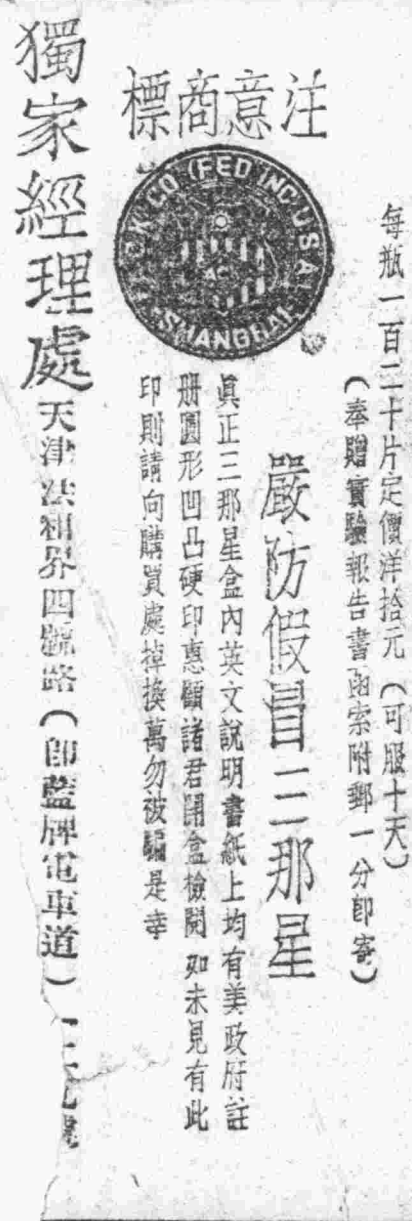 每瓶一百二十片定價洋拾元（可服十天）
（奉贈實驗報告書函索附郵一分即寄）
注意商標
CO (FED INC U.S.A.)
SHANGHAI
嚴防假冒三那星
眞正三那星盒內英文說明書紙上均有美政府註
册圓形凹凸硬印惠顧諸君開盒檢閱如未見有此
印則請向購買處掉換萬勿被騙是幸
獨家經理處天津法租界四號路（即藍牌電車道）